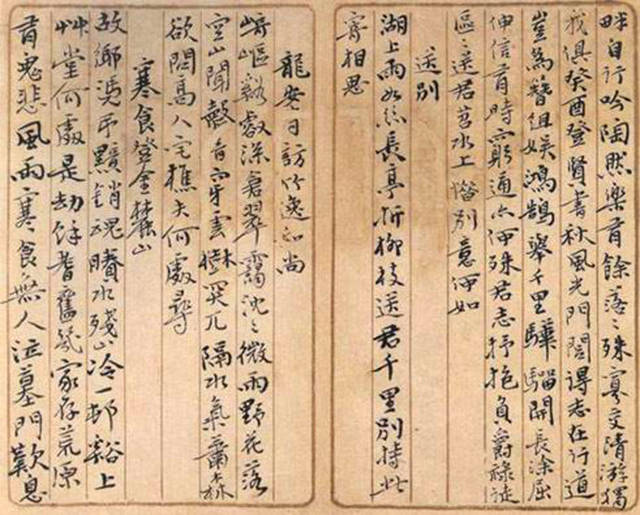 畔自行吟陶然樂有餘落〻殊寡交隋游獨
我俱癸酉登賢書秋風光門閭得志在行道
豈為簪組娱鴻鵠舉千里驊騮開長涂屈
伸信有時窮通亦何殊君志抒抱負爵祿徒
區〻送君苕水上惜別意何如
送別
湖上雨如絲長亭折柳枝送君千里別持此
寄相思
龍安日訪竹逸和尚
崎嶇谿壑深蒼翠靄沈〻微雨野花落
空山聞磬音穿雲樹突兀隔水氣蕭森
欲問高人宅樵夫何處尋
寒食登金麓山
故鄉凭弔黯銷魂賸水殘山冷一邨谿上
艸堂何處是劫餘耆舊幾家存荒原
有鬼悲風雨寒食無人泣墓門歎息